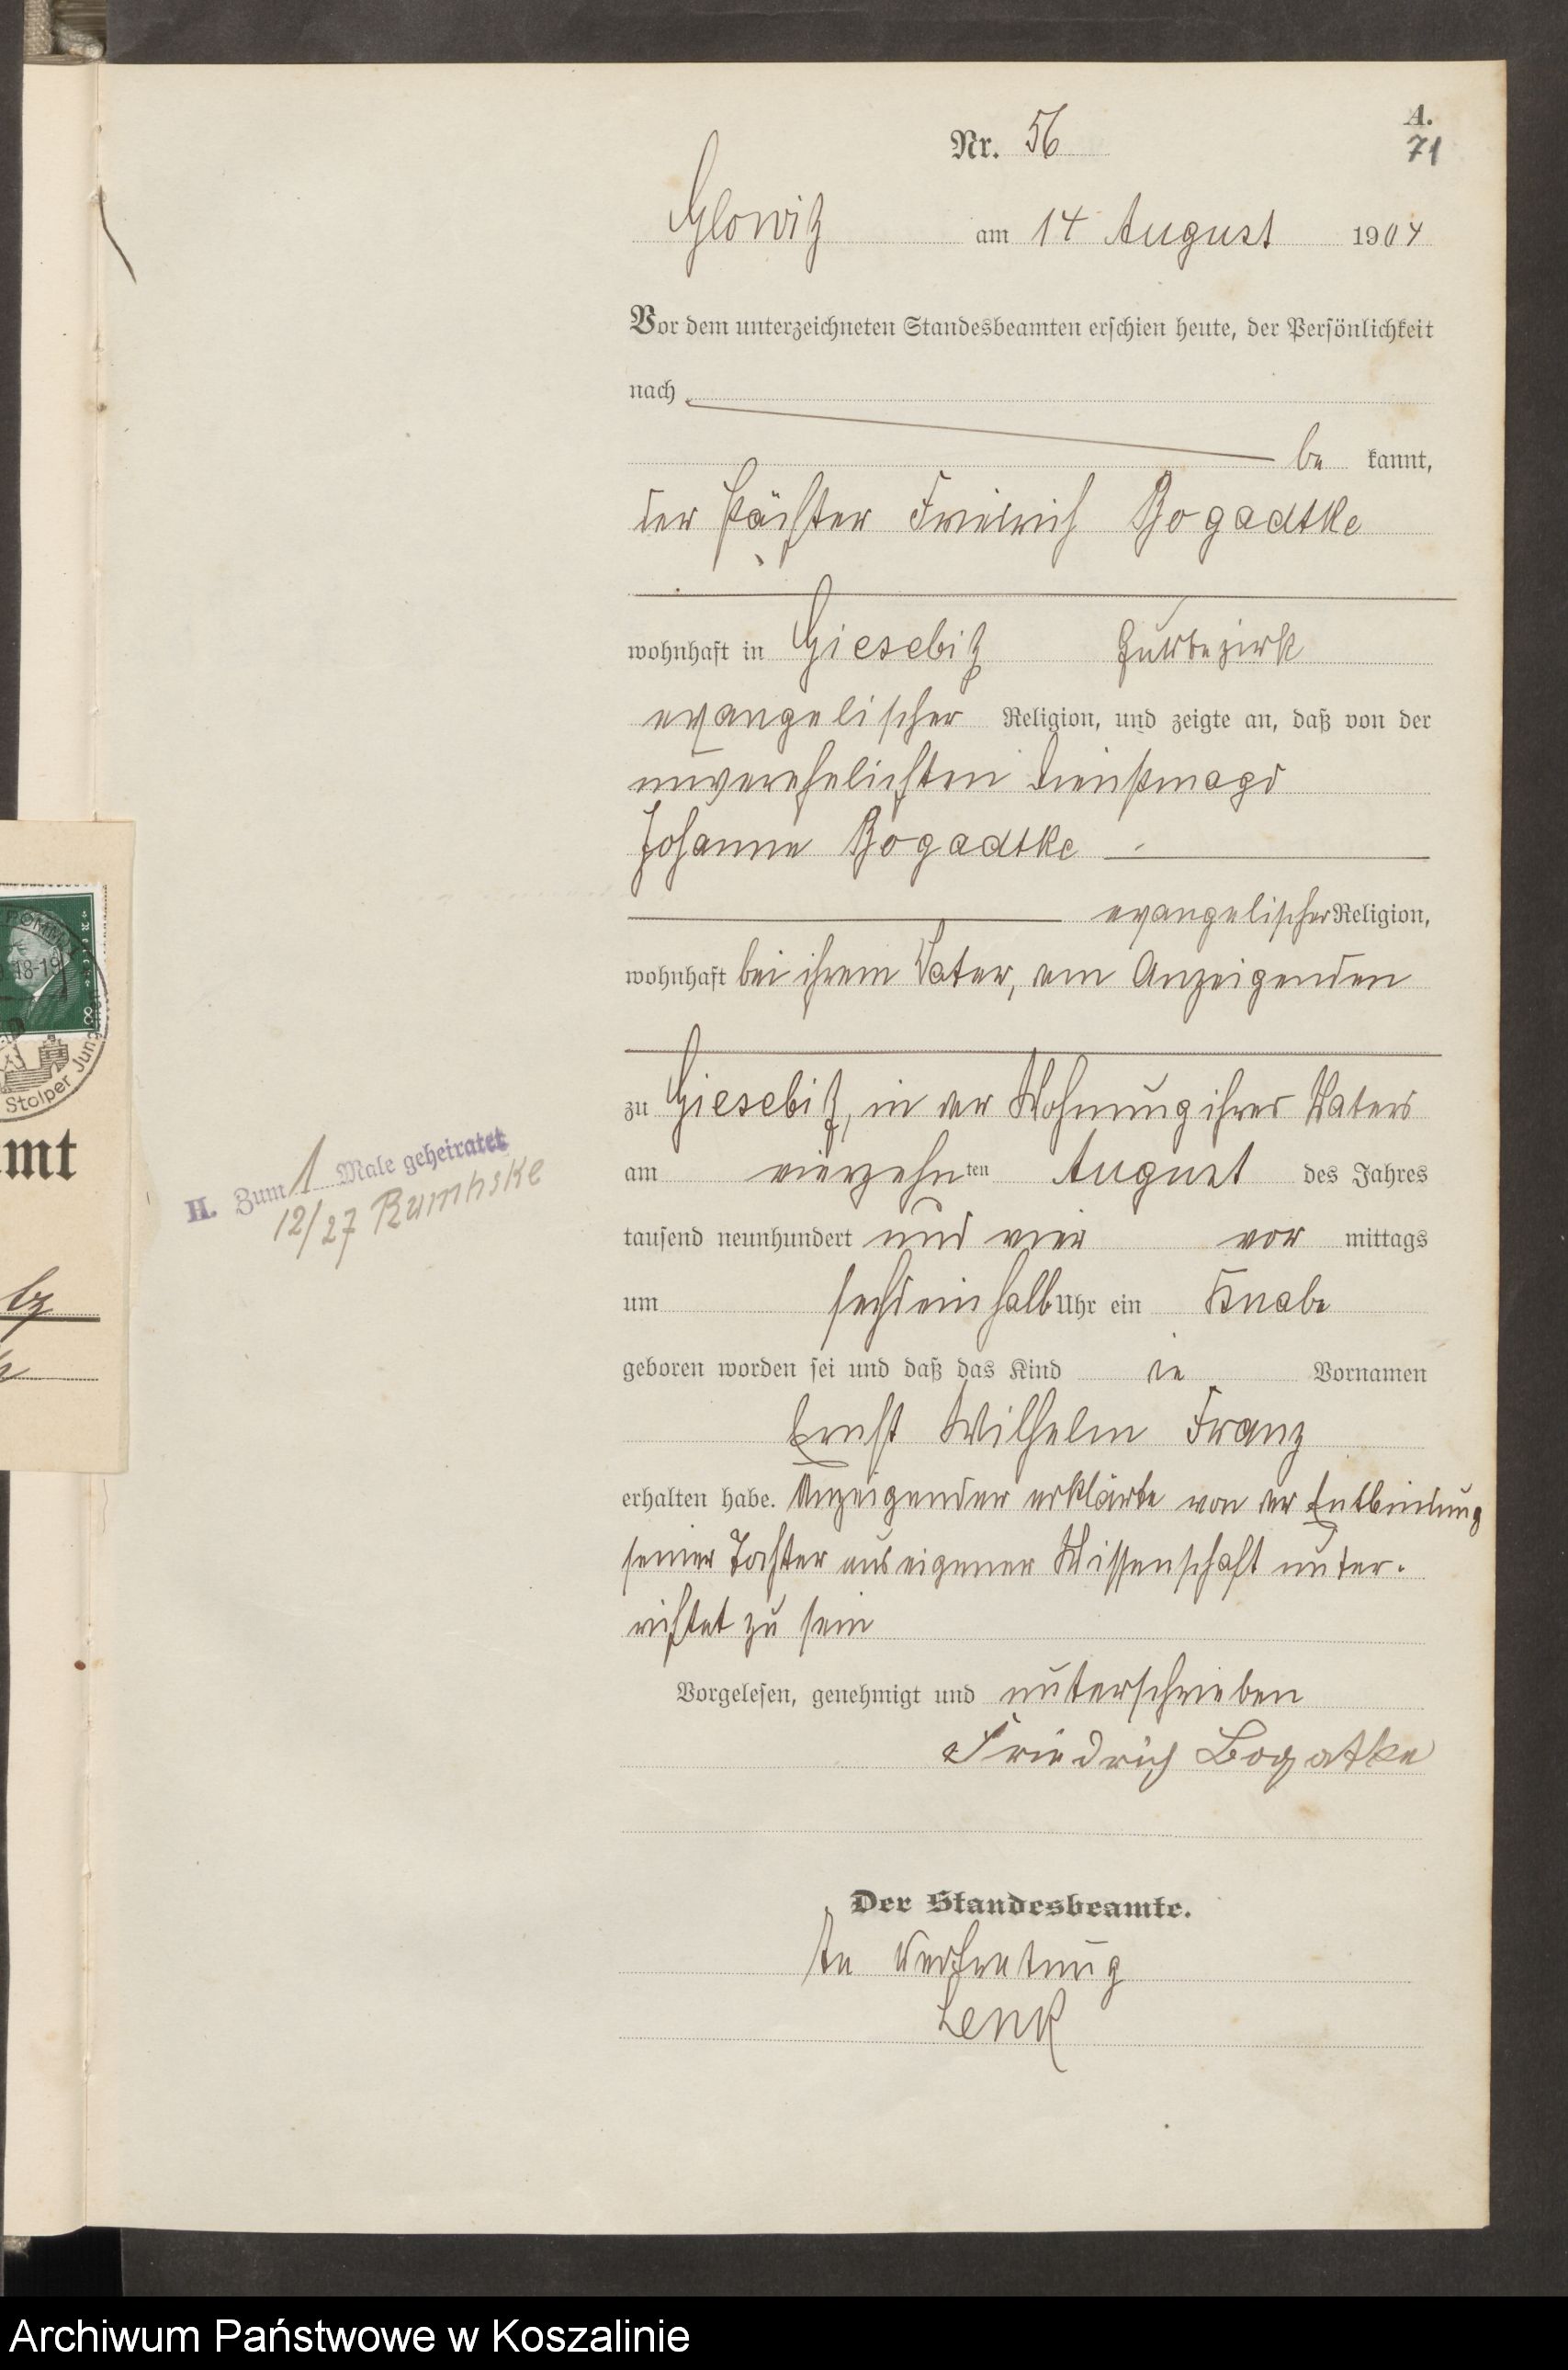 A.
71
Nr. 56
Glowitz am 14 August 1904
Vor dem unterzeichneten Standesbeamten erschien heute, der Persönlichkeit
nach
be kannt,
der Pächter Friedrich Bogadtke
wohnhaft in Giesebitz Gutsbezirk
evangelischer Religion, und zeigte an, daß von der
unverehelichten Dienstmagd
Johanne Bogadtke
evangelischer Religion,
wohnhaft bei ihrem Vater, dem Anzeigenden
zu Giesebitz, in der Wohnung ihres Vaters
am vierzehn ten August des Jahres
tausend neunhundert und vier vor mittags
um sechseinhalb Uhr ein Knabe
geboren worden sei und daß das Kind die Vornamen
Ernst Wilhelm Franz
erhalten habe. Anzeigender erklärte von der Entbindung
seiner Tochter aus eigener Wissenschaft unter-
richtet zu sein
Vorgelesen, genehmigt und unterschrieben
Friedrich Bogatke
Der Standesbeamte.
In Vertretung
Lenk
II. Zum 1 Male geheiratet
12/27 Rumbske
POMM
18-19
8
Stolper Jun
amt
Archiwum Państwowe w Koszalinie